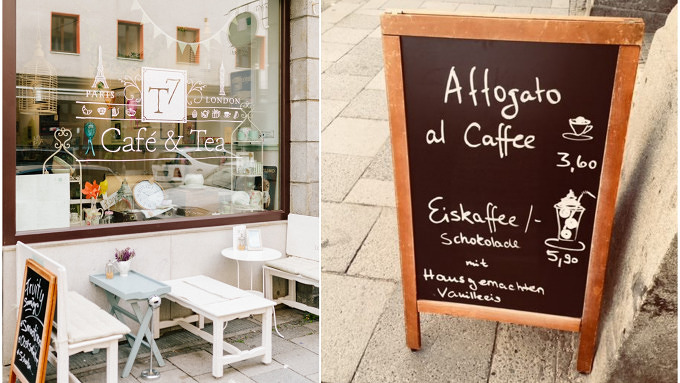 PARIS
T7
LONDON
Café & Tea
Fruity
Affogato
al Caffee
3,60
Eiskaffee/-
Schokolade
5,90
mit
Hausgemachten
Vanilleeis